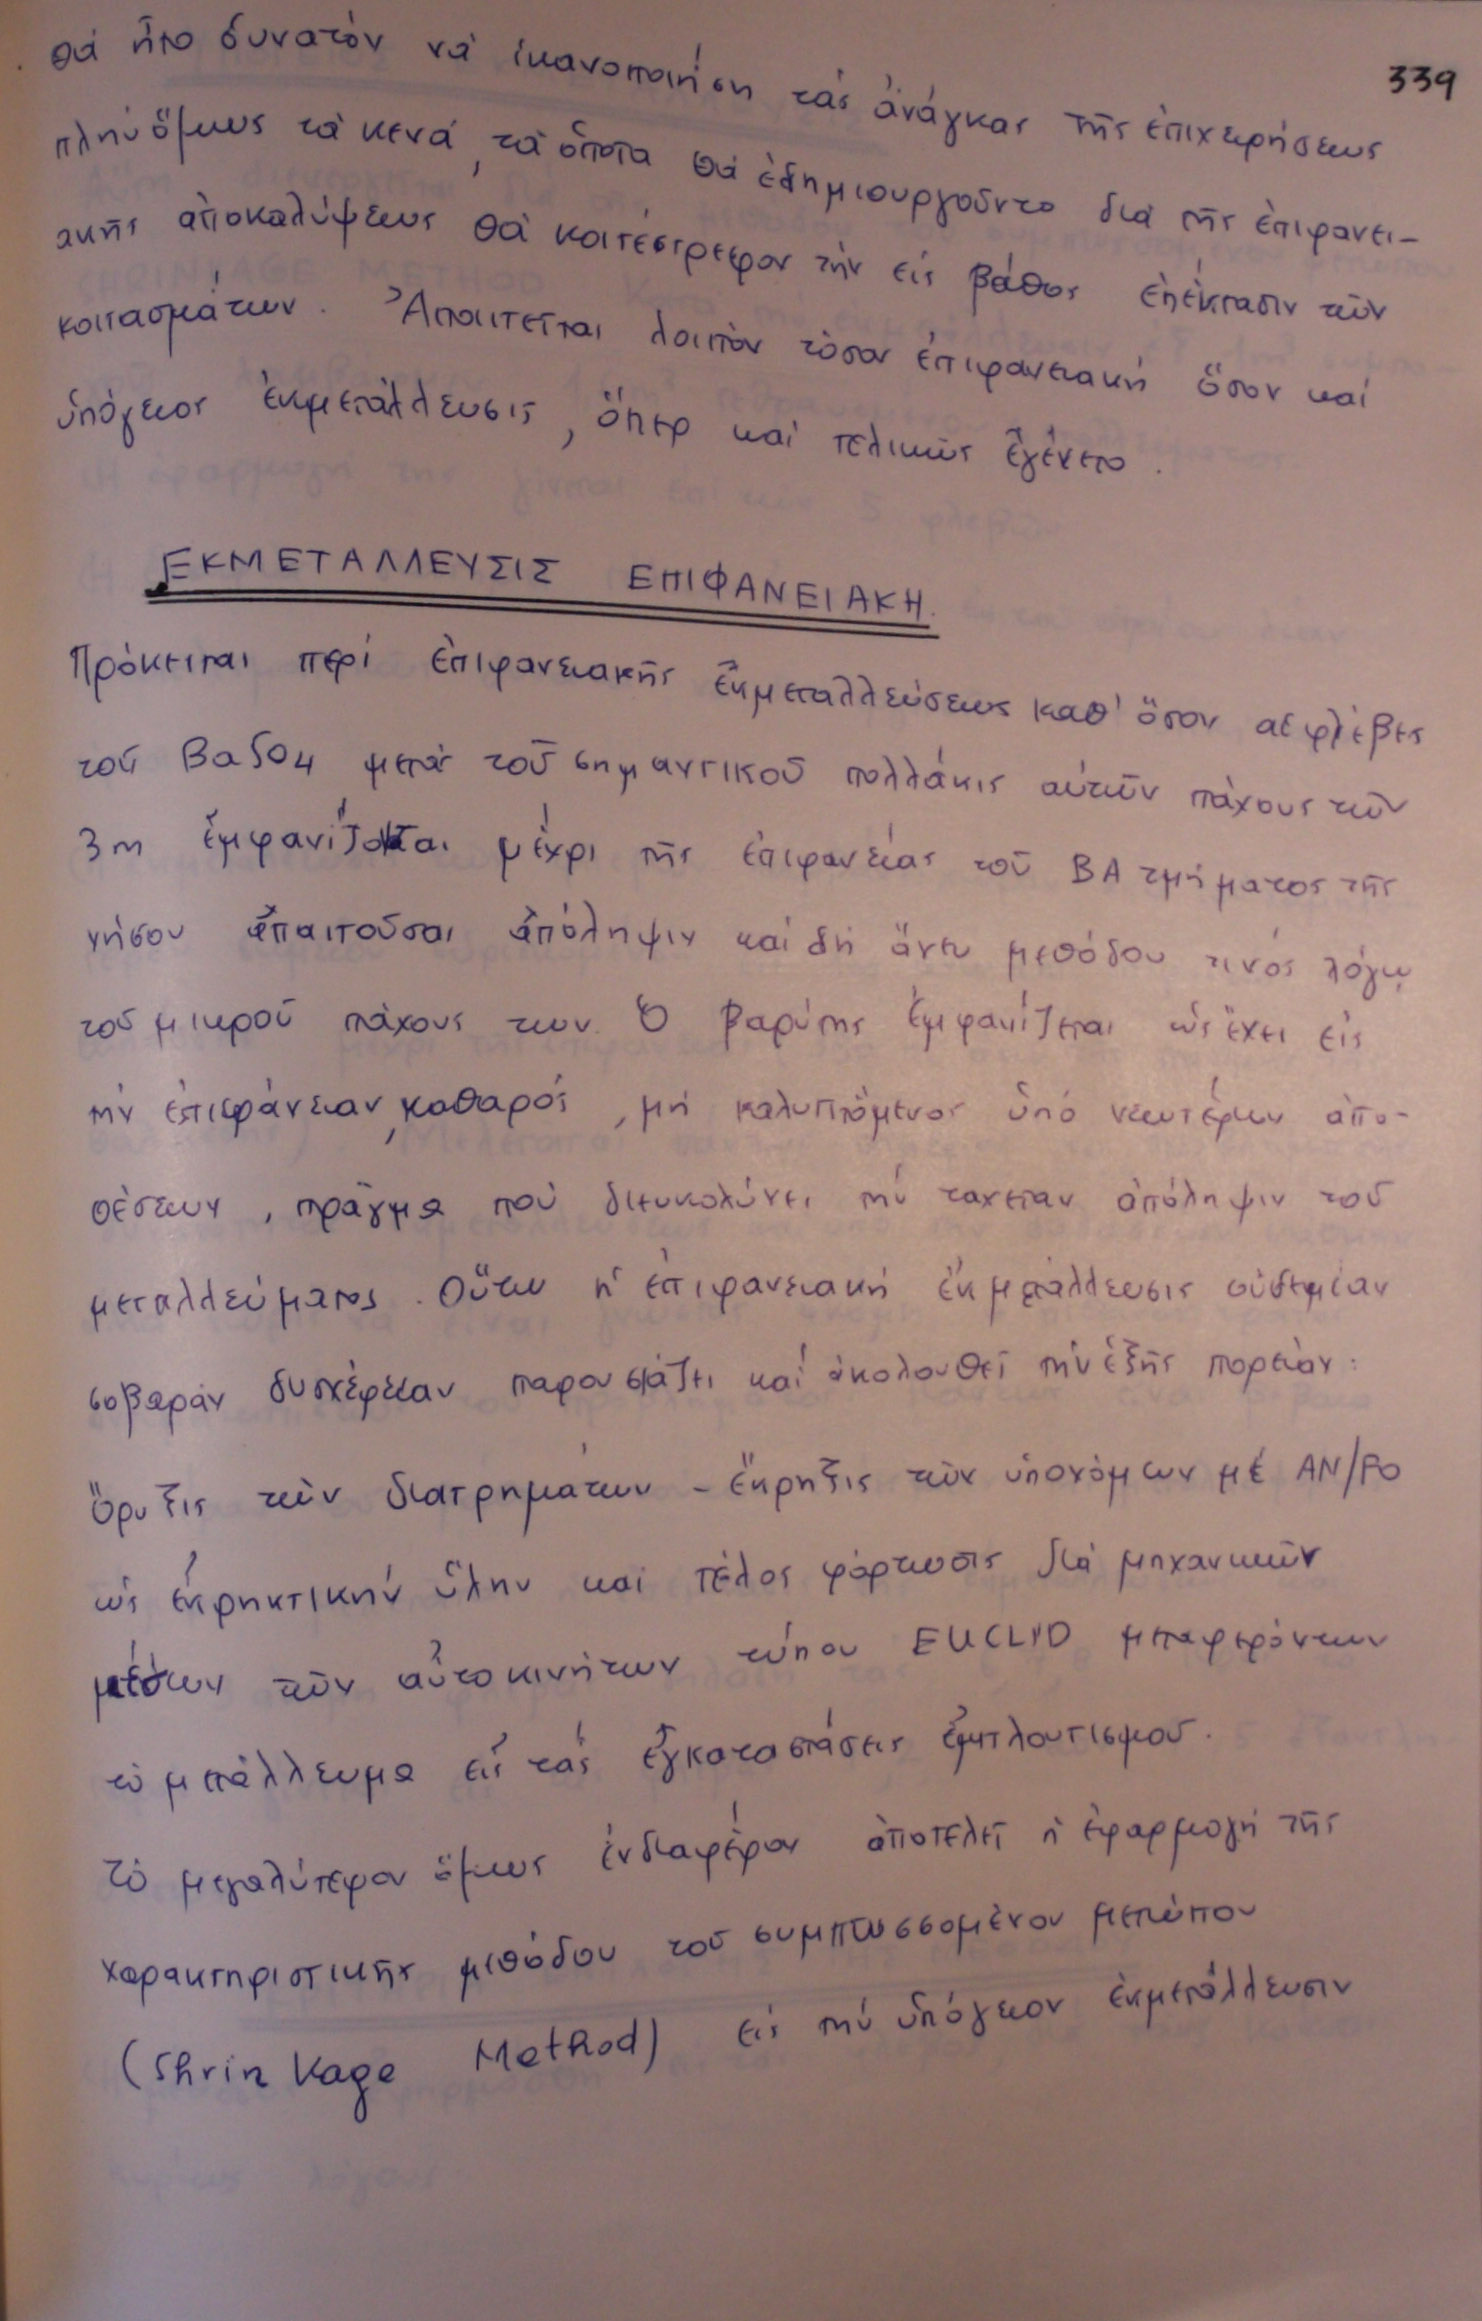 339
θά ἦτο δυνατόν νά ἱκανοποιήση τάς ἀνάγκας τῆς ἐπιχειρήσεως
πλήν ὅμως τά κενά, τά ὁποῖα θά ἐδημιουργοῦντο διά τῆς ἐπιφανει-
ακῆς ἀποκαλύψεως θά κατέστρεφον τήν εἰς βάθος ἐπέκτασιν τῶν
κοιτασμάτων. Ἀπαιτεῖται λοιπόν τόσον ἐπιφανειακή ὅσον καί
ὑπόγειος ἐκμετάλλευσις, ὅπερ καί τελικῶς ἐγένετο.
ΕΚΜΕΤΑΛΛΕΥΣΙΣ ΕΠΙΦΑΝΕΙΑΚΗ.
Πρόκειται περί ἐπιφανειακῆς ἐκμεταλλεύσεως καθ' ὅσον αἱ φλέβες
τοῦ BaSO4 μετά τοῦ σημαντικοῦ πολλάκις αὐτῶν πάχους τῶν
3m ἐμφανίζονται μέχρι τῆς ἐπιφανείας τοῦ ΒΑ τμήματος τῆς
νήσου ἀπαιτοῦσαι ἀπόληψιν καί δή ἄνευ μεθόδου τινός λόγῳ
τοῦ μικροῦ πάχους των. Ὁ βαρύτης ἐμφανίζεται ὡς ἔχει εἰς
τήν ἐπιφάνειαν, καθαρός, μή καλυπτόμενος ὑπό νεωτέρων ἀπο-
θέσεων, πρᾶγμα πού διευκολύνει τήν ταχεῖαν ἀπόληψιν τοῦ
μεταλλεύματος. Οὕτω ἡ ἐπιφανειακή ἐκμετάλλευσις οὐδεμίαν
σοβαράν δυσχέρειαν παρουσιάζει καί ἀκολουθεῖ τήν ἑξῆς πορείαν:
Ὄρυξις τῶν διατρημάτων - ἔκρηξις τῶν ὑπονόμων μέ AN/FO
ὡς ἐκρηκτικήν ὕλην καί τέλος φόρτωσις διά μηχανικῶν
μέσων τῶν αὐτοκινήτων τύπου EUCLID μεταφερόντων
τό μετάλλευμα εἰς τάς ἐγκαταστάσεις ἐμπλουτισμοῦ.
Τό μεγαλύτερον ὅμως ἐνδιαφέρον ἀποτελεῖ ἡ ἐφαρμογή τῆς
χαρακτηριστικῆς μεθόδου τοῦ συμπτυσσομένου μετώπου
(Shrinkage Method) εἰς τήν ὑπόγειον ἐκμετάλλευσιν